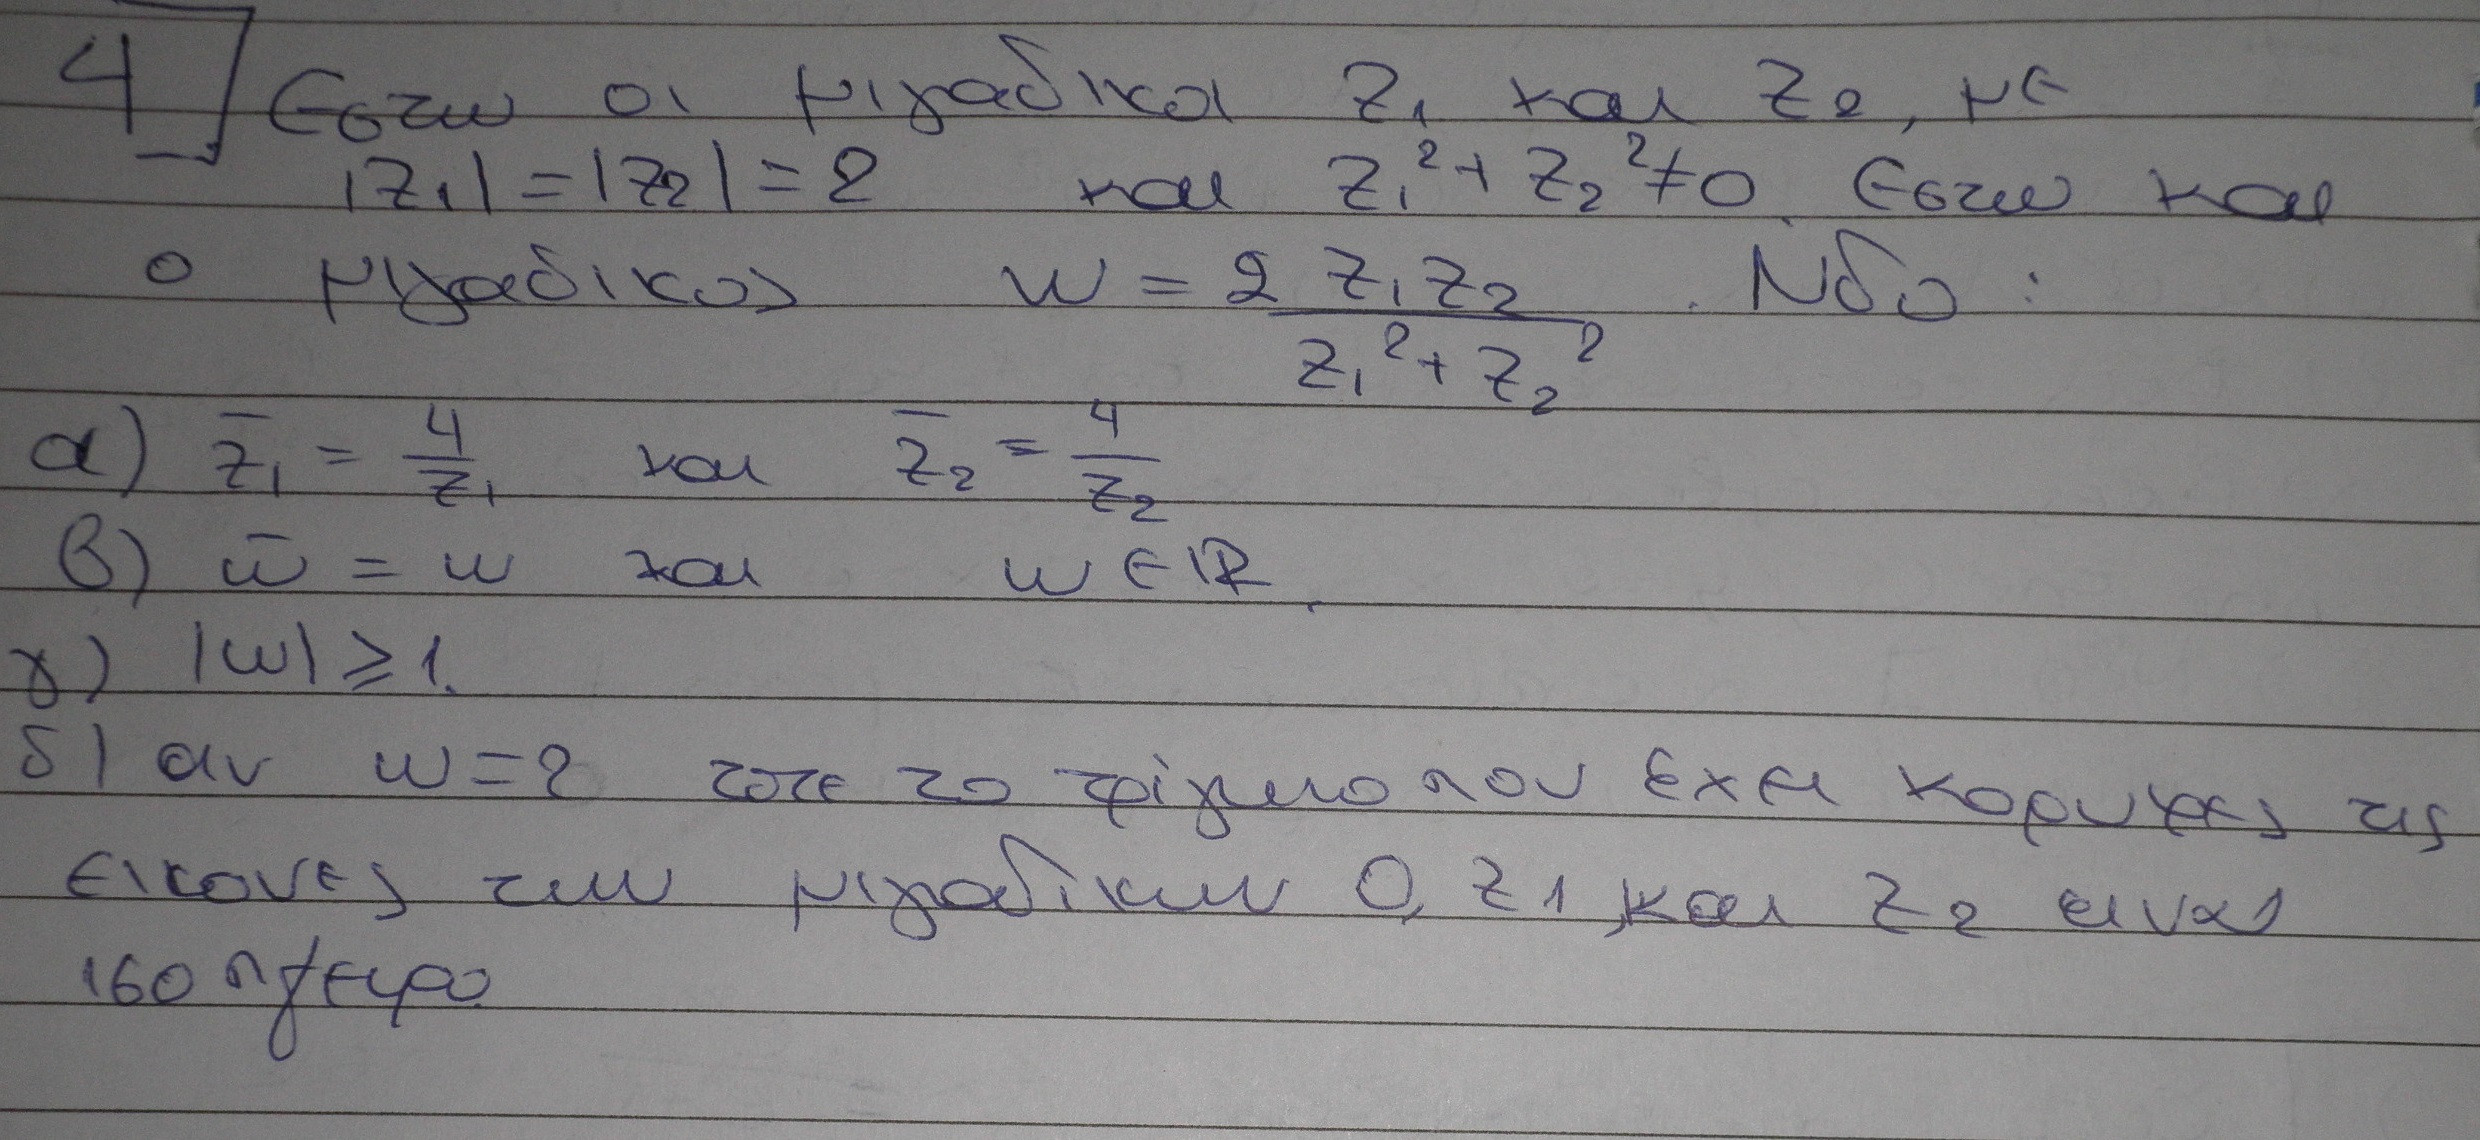 4] Εστω οι μιγαδικοι z₁ και z₂, με
|z₁| = |z₂| = 2 και z₁² + z₂² ≠ 0. Εστω και
ο μιγαδικος w = 2 z₁z₂ / z₁² + z₂² . Νδο :
α) z̄₁ = 4/z₁ και z̄₂ = 4/z₂
β) w̄ = w και w ∈ ℝ.
γ) |w| ≥ 1.
δ) αν w = 2 τοτε το τρίγωνο που εχει κορυφες τις
εικονες των μιγαδικων 0, z1, και z2 ειναι
ισοπλευρο